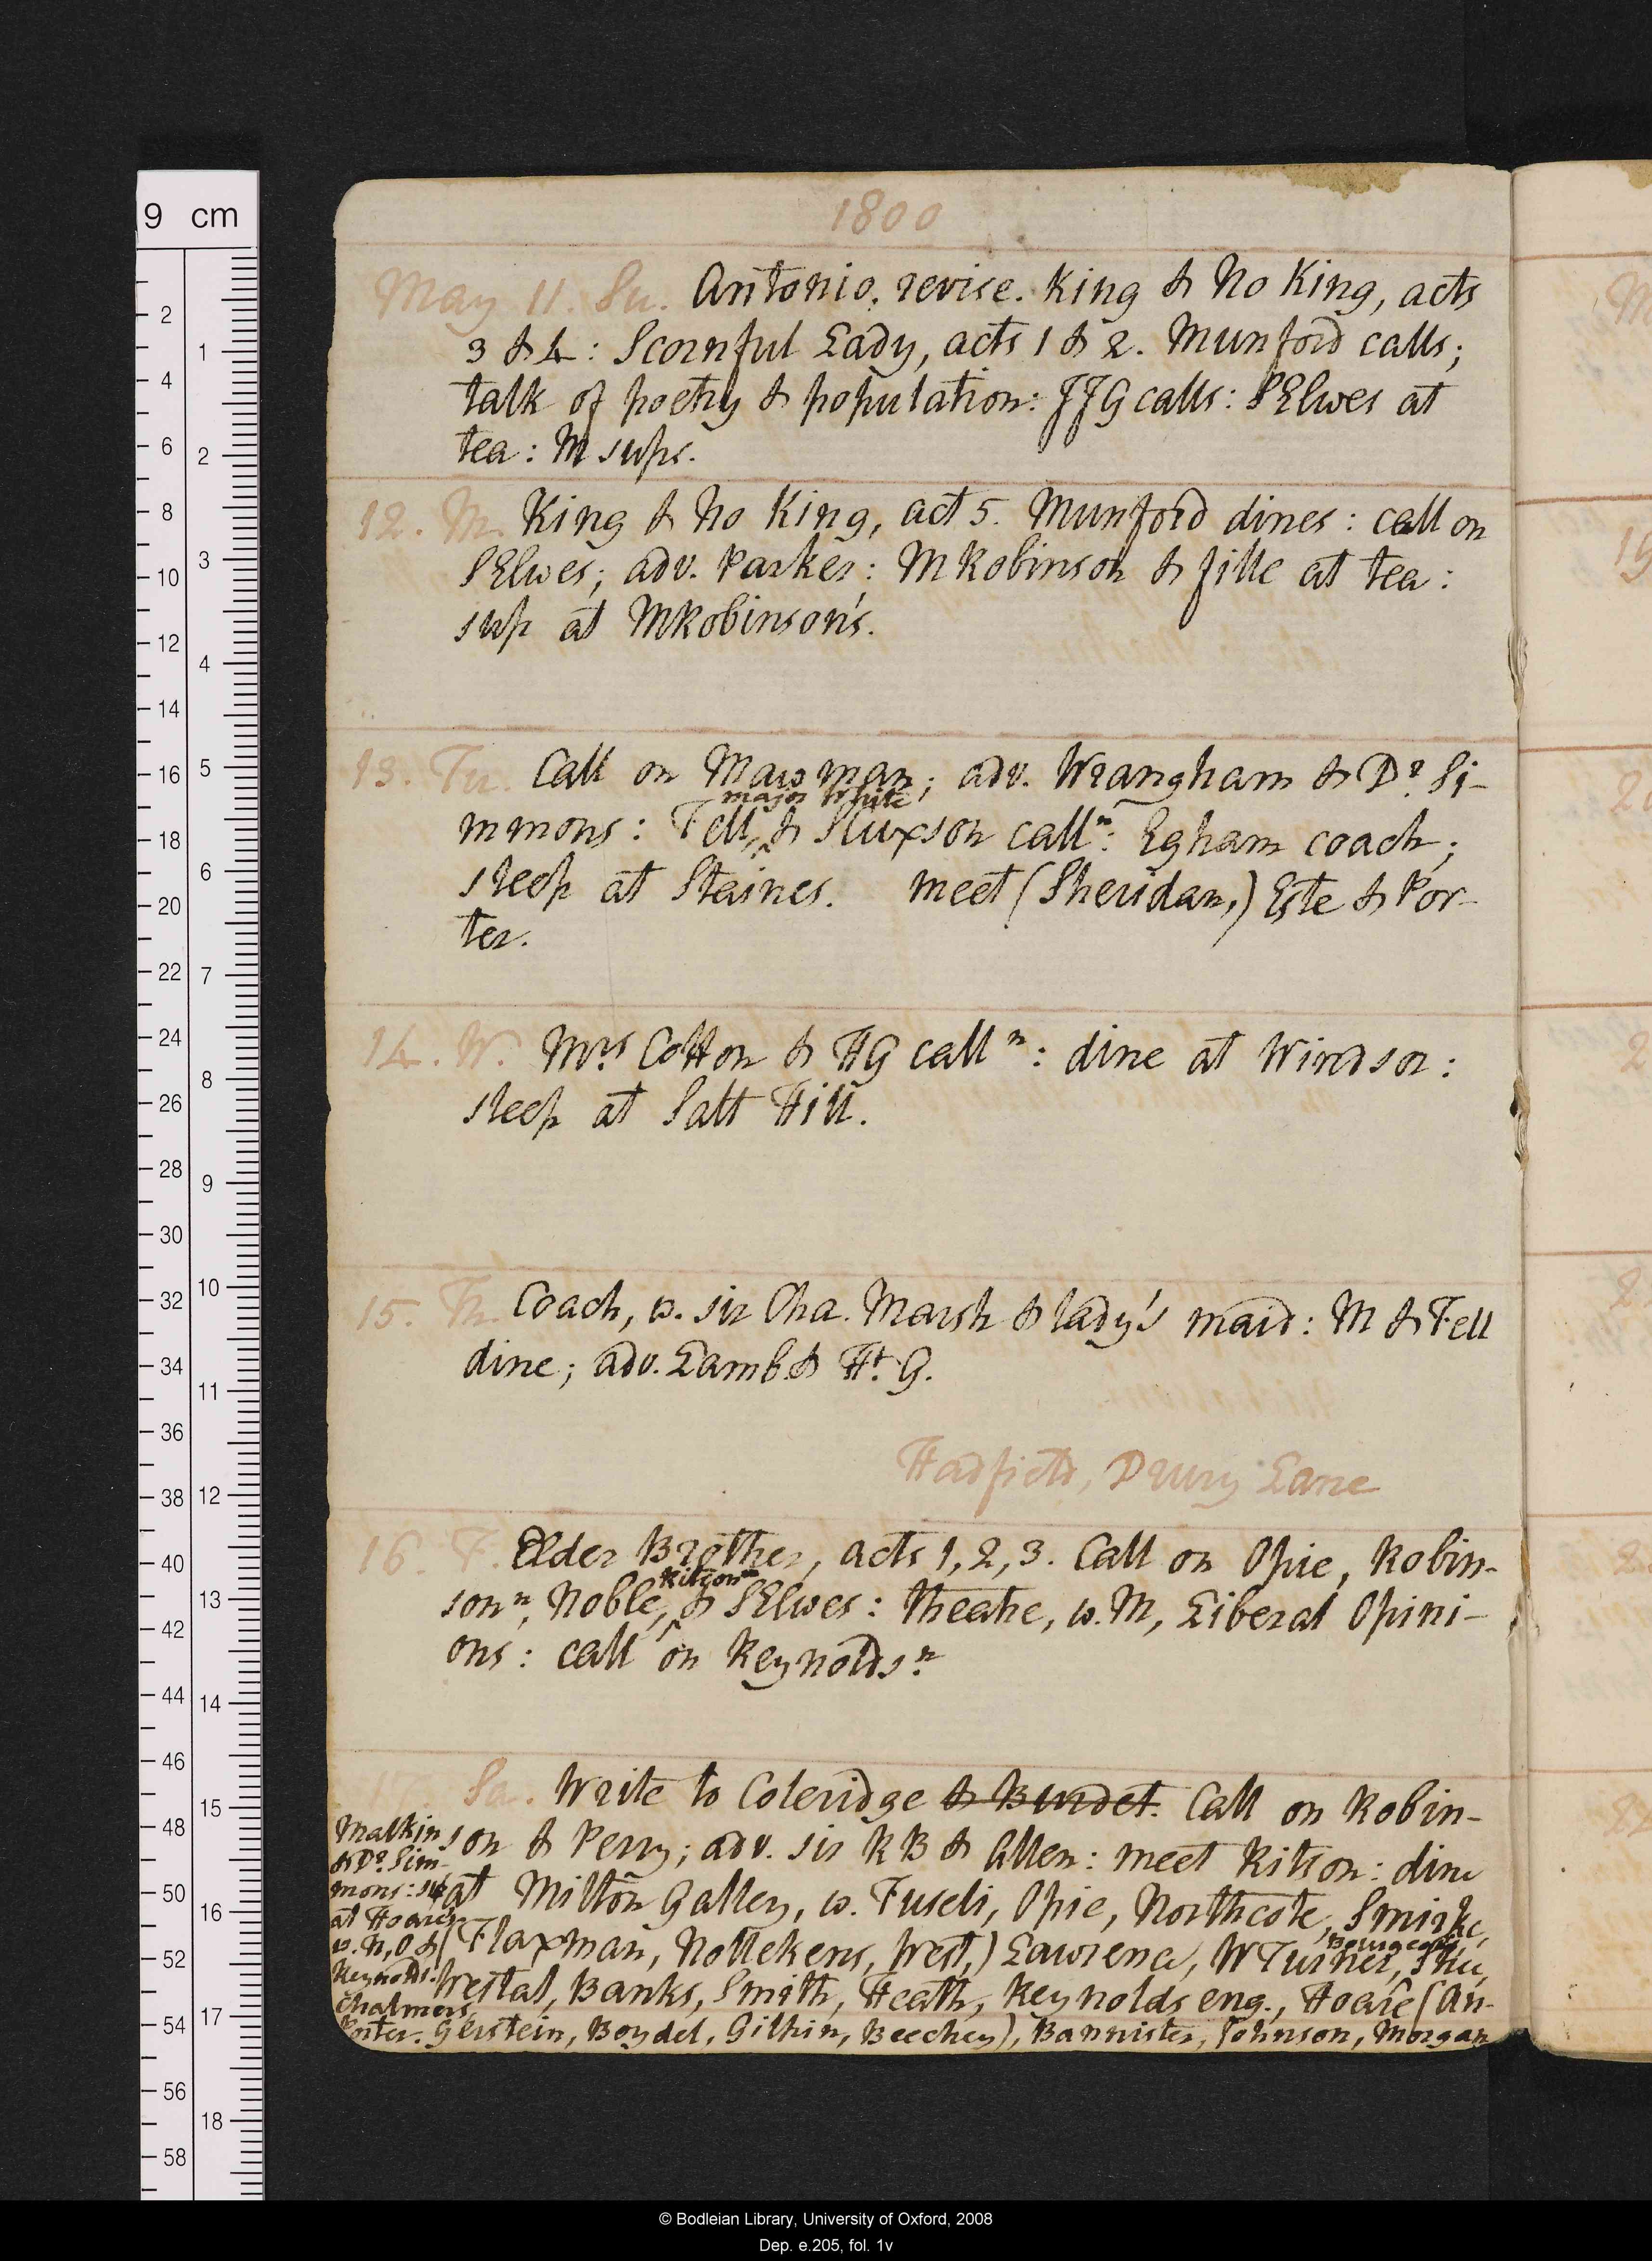 1800
May 11. Su. Antonio, revise. King & No King, acts
3 & 4: Scornful Lady, acts 1 & 2. Munford calls;
talk of poetry & population: JJG calls: PElwes at
tea: M sups.
12. M. King & No King, act 5. Munford dines: call on
PElwes; adv. Parker: MRobinson & fille at tea:
sup at MRobinson's.
13. Tu. Call on Mawman; adv. Wrangham & Dr. Si-
major White,
mmons: Fell, & Sluxson calln: Egham coach;
sleep at Staines. meet (Sheridan,) Este & Por-
ter.
14. W. Mrs Cotton & HG calln: dine at Windsor:
sleep at Salt Hill.
15. Th. Coach, w. sir Cha. Marsh & lady's maid: M & Fell
dine; adv. Lamb & Ht. G.
Hadfield, Drury Lane
16. F. Elder Brother, acts 1, 2, 3. Call on Opie, Robin-
Ritson n
sonn, Noble, & PElwes: theatre, w. M, Liberal Opini-
ons: call on Reynolds n
17. Sa. Write to Coleridge & Burdet. Call on Robin-
son & Perry; adv. sir RB & Allen: meet Ritson: dine
at Milton Gallery, w. Fuseli, Opie, Northcote, Smirke,
Bourgeois,
(Flaxman, Nollekens, West,) Lawrence, WTurner, Shee,
Westal, Banks, Smith, Heath, Reynolds eng., Hoare (An-
gerstein, Boydel, Gilpin, Beechey), Bannister, Johnson, Morgan
Malkin
& Dr. Sim-
mons: sup
at Hoare's
w. N, O &
Reynolds.
Chalmers,
Porter.
9 cm
2
4
6
8
10
12
14
16
18
20
22
24
26
28
30
32
34
36
38
40
42
44
46
48
50
52
54
56
58
1
2
3
4
5
6
7
8
9
10
11
12
13
14
15
16
17
18
© Bodleian Library, University of Oxford, 2008
Dep. e.205, fol. 1v